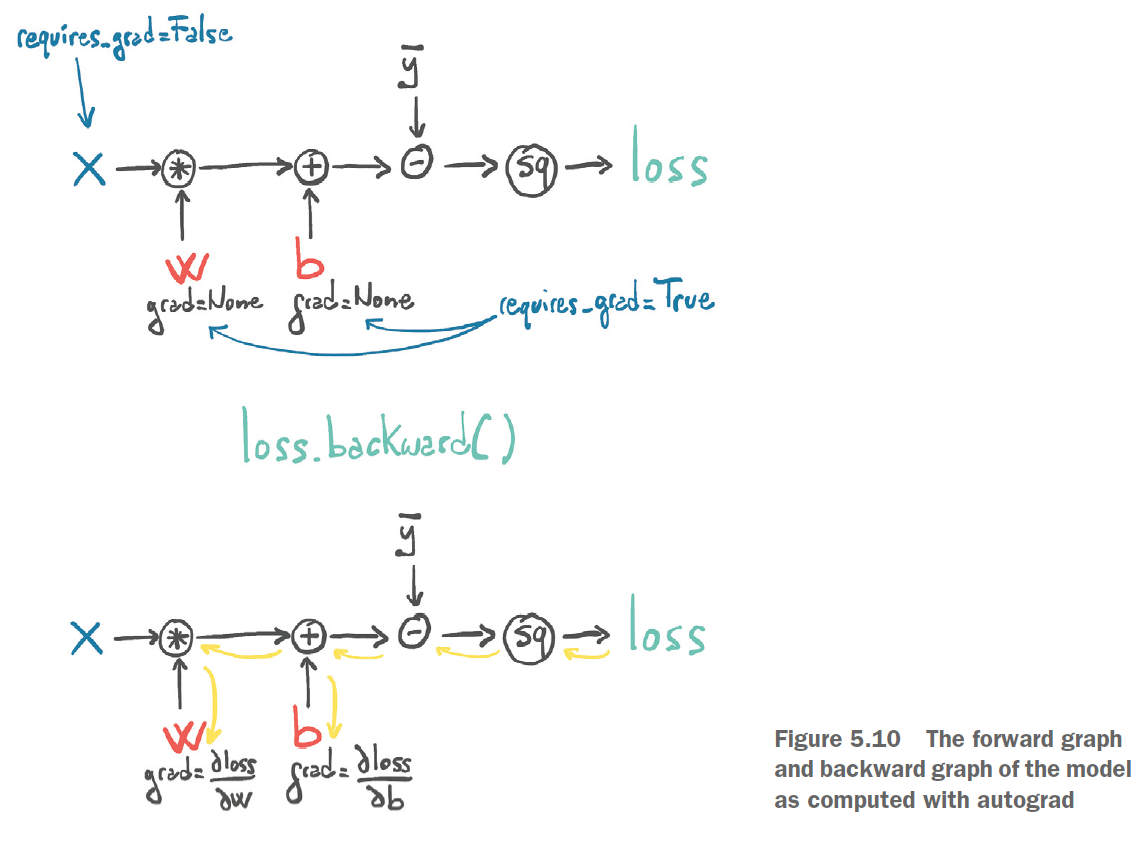 requires_grad=False
ȳ
x * + - sq loss
w b
grad=None grad=None requires_grad=True
loss.backward()
ȳ
x * + - sq loss
w b
grad=∂loss/∂w grad=∂loss/∂b
Figure 5.10 The forward graph
and backward graph of the model
as computed with autograd